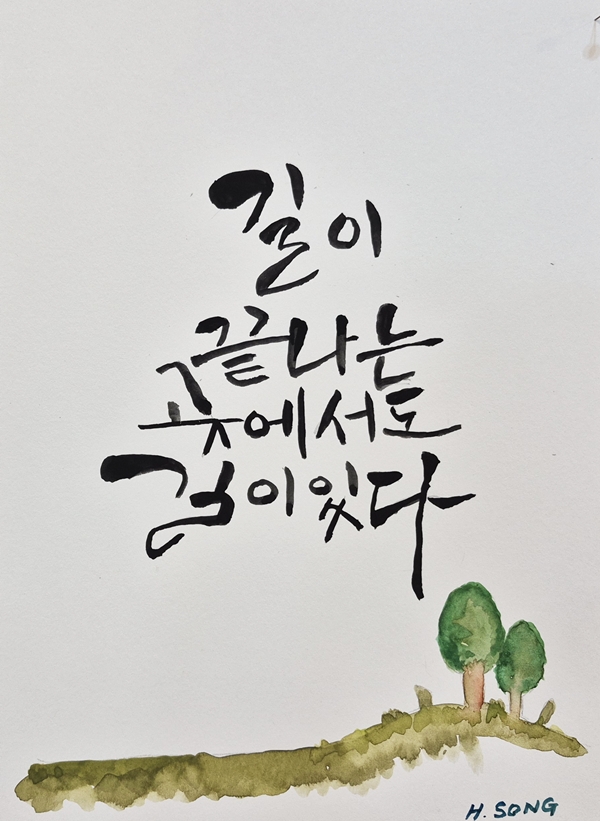 길이
끝나는
곳에서도
길이있다
H. SONG